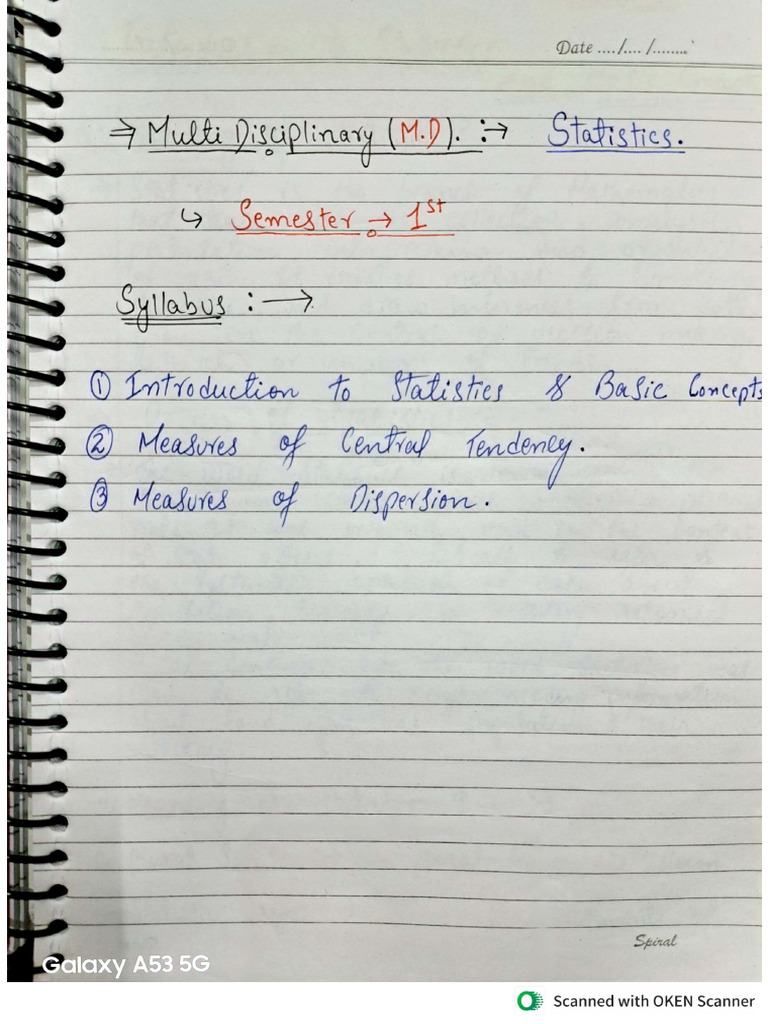 Date ..../..../........
⇒ Multi Disciplinary (M.D). :→ Statistics.
↳ Semester → 1st
Syllabus :→
① Introduction to Statistics & Basic Concepts
② Measures of Central Tendency.
③ Measures of Dispersion.
Spiral
Galaxy A53 5G
Scanned with OKEN Scanner